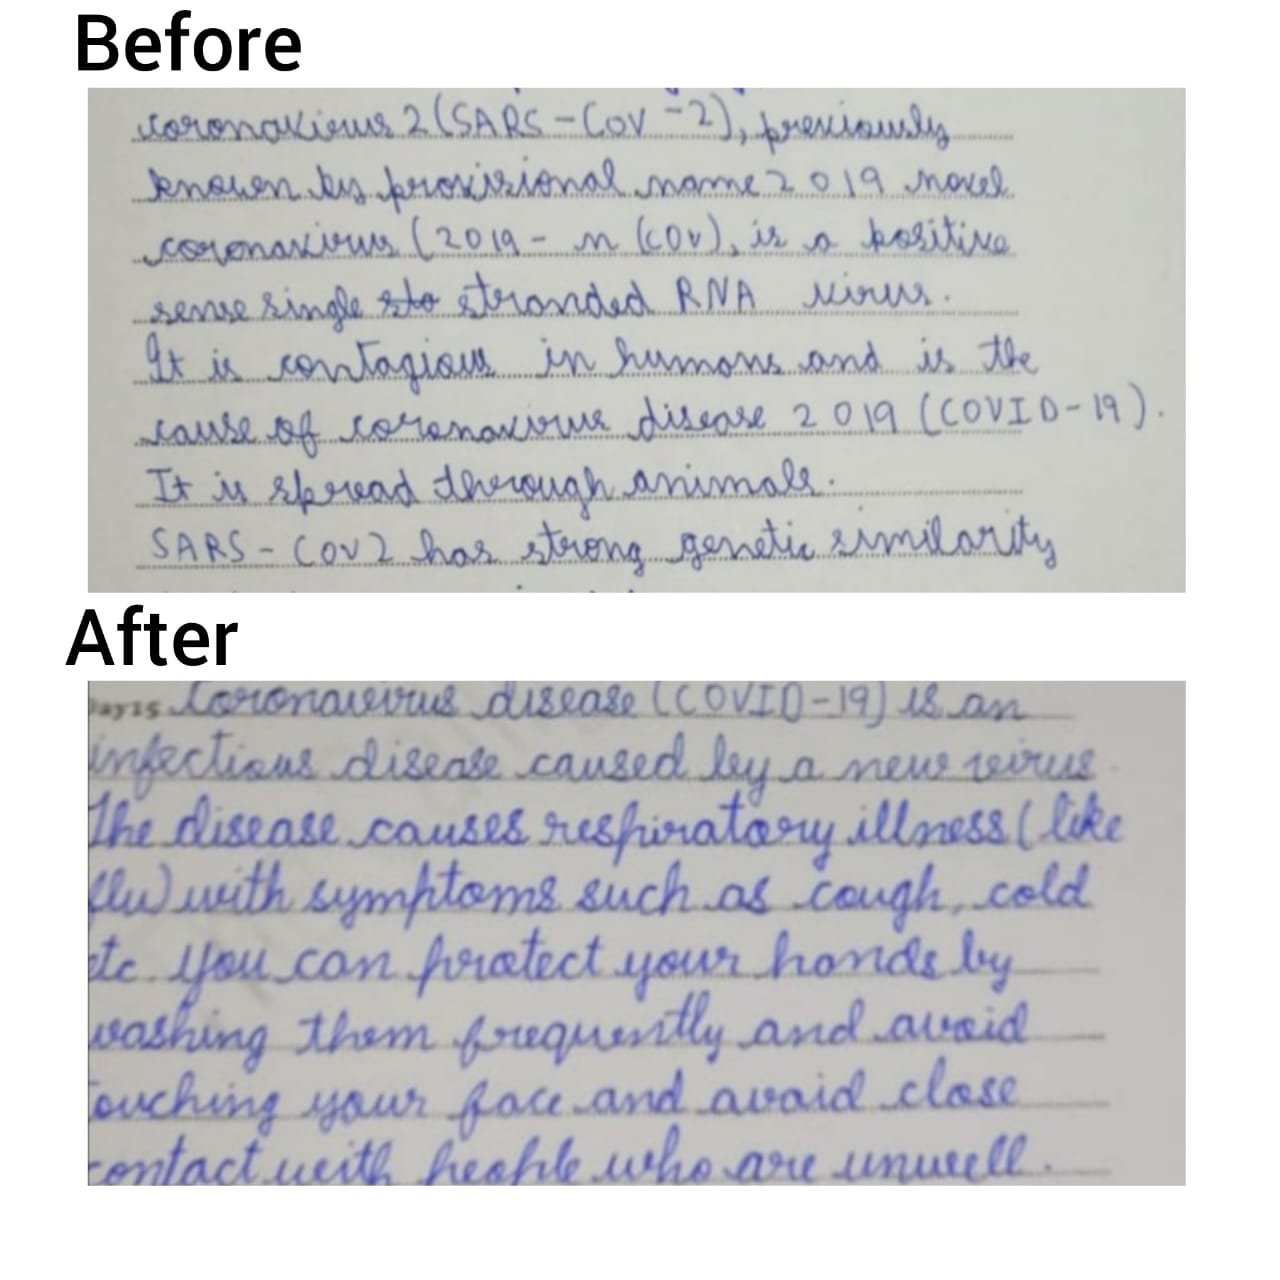 Before
coronavirus 2 (SARS-CoV-2), previously
known by provisional name 2019 novel
coronavirus (2019-n (COV), is a positive
sense single sto stranded RNA virus.
It is contagious in humans and is the
cause of coronavirus disease 2019 (COVID-19).
It is spread through animals.
SARS-COV2 has strong genetic similarity
After
Day 15 Coronavirus disease (COVID-19) is an
infectious disease caused by a new virus
The disease causes respiratory illness (like
flu) with symptoms such as cough, cold
etc. You can protect your hands by
washing them frequently and avoid
touching your face and avoid close
contact with people who are unwell.